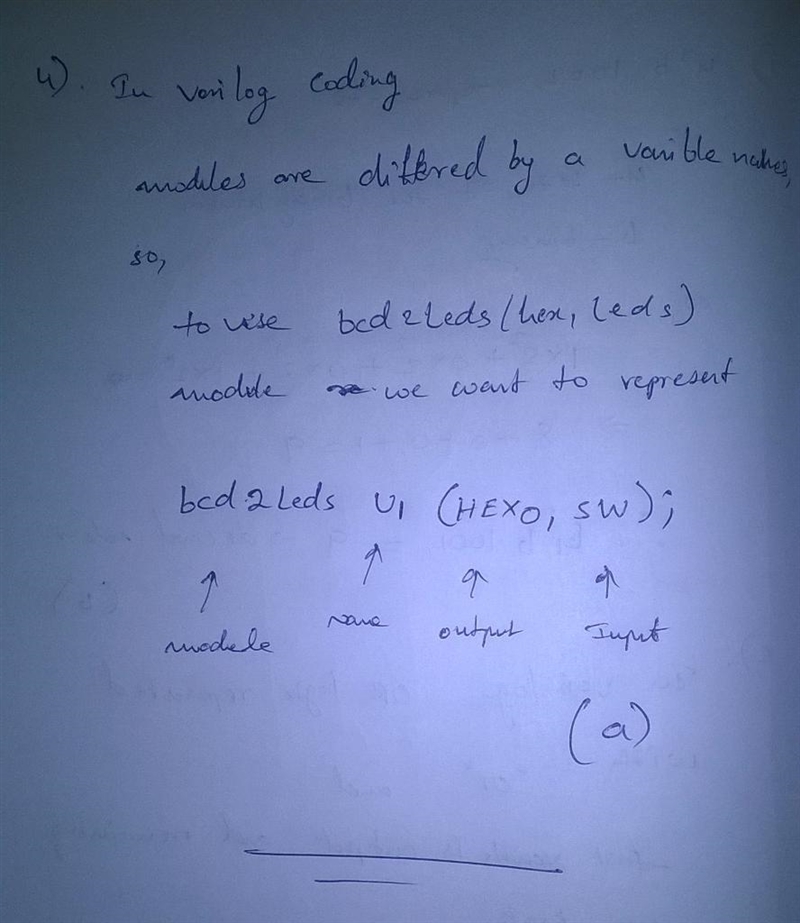 4). In verilog coding
modules are differed by a varible names,
so,
to use bcd2Leds(hex, leds)
module we want to represent
bcd2Leds U1 (HEX0, SW);
module name output Input
(a)